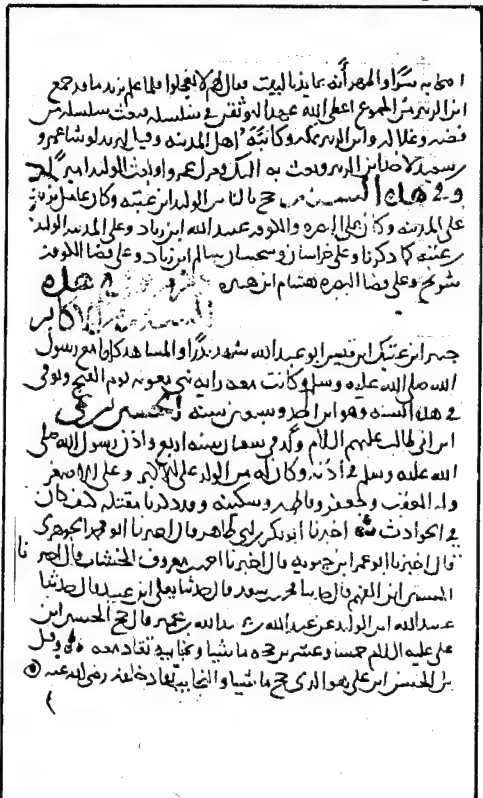 امي به سرا والمهر أنه عايذ بالبيت فقال لهم لا تعجلوا فلما علم يزيد ما قد جمع
ابن الزبير من الجموع اعطى الله عهدا ليوثقن في سلسله فبعث سلسله من
فضه وغلا له وابن الزبير بمكه وكاتبه اهل المدينه وقيل ليزيد لو شا عمرو
بن سعيد لاخذ ابن الزبير وبعث به اليك فعزل عمرا وولى الوليد اميرا
وفي هذه السنة حج بالناس الوليد ابن عتبه وكان عامل يزيد
على المدينه وكان على البصره والكوفه عبيد الله ابن زياد وعلى المدينه الوليد
بن عتبه كما ذكرنا وعلى خراسان وسجستان سالم ابن زياد وعلى قضا الكوفه
شريح وعلى قضا البصره هشام ابن هبيره في هذه
السنة من الاكابر
جبر ابن عتيك ابن قيس ابو عبد الله شهد بدرا والمساهد كلها مع رسول
الله صلى الله عليه وسلم وكانت معه رايه بني معويه يوم الفتح وتوفي
في هذه السنه وهو ابن احدى وسبعين سنه الحسين بن علي
ابن ابي طالب عليهم السلام ولد في شعبان سنه اربع واذن رسول الله صلى
الله عليه وسلم في اذنه وكان له من الولد على الاكبر وعلى الاصغر
وله العقب وجعفر وفاطمه وسكينه وقد ذكرنا مقتله كيف كان
في الحوادث اخبرنا ابو بكر بن ابي طاهر قال اخبرنا ابو محمد الجوهري
قال اخبرنا ابو عمر ابن حيويه قال اخبرنا احمد بن معروف الخشاب قال اخبرنا
الحسين ابن الفهم قال حدثنا محمد بن سعد قال حدثنا يعلى ابن عبيد قال حدثنا
عبيد الله ابن الوليد عن عبد الله بن عبيد الله بن عمير قال حج الحسين ابن
علي عليه السلام خمسا وعشرين حجه ماشيا ونجايبه تقاد معه وقيل
بل الحسن ابن علي هو الذي حج ماشيا والنجايب تقاد معه رضي الله عنه